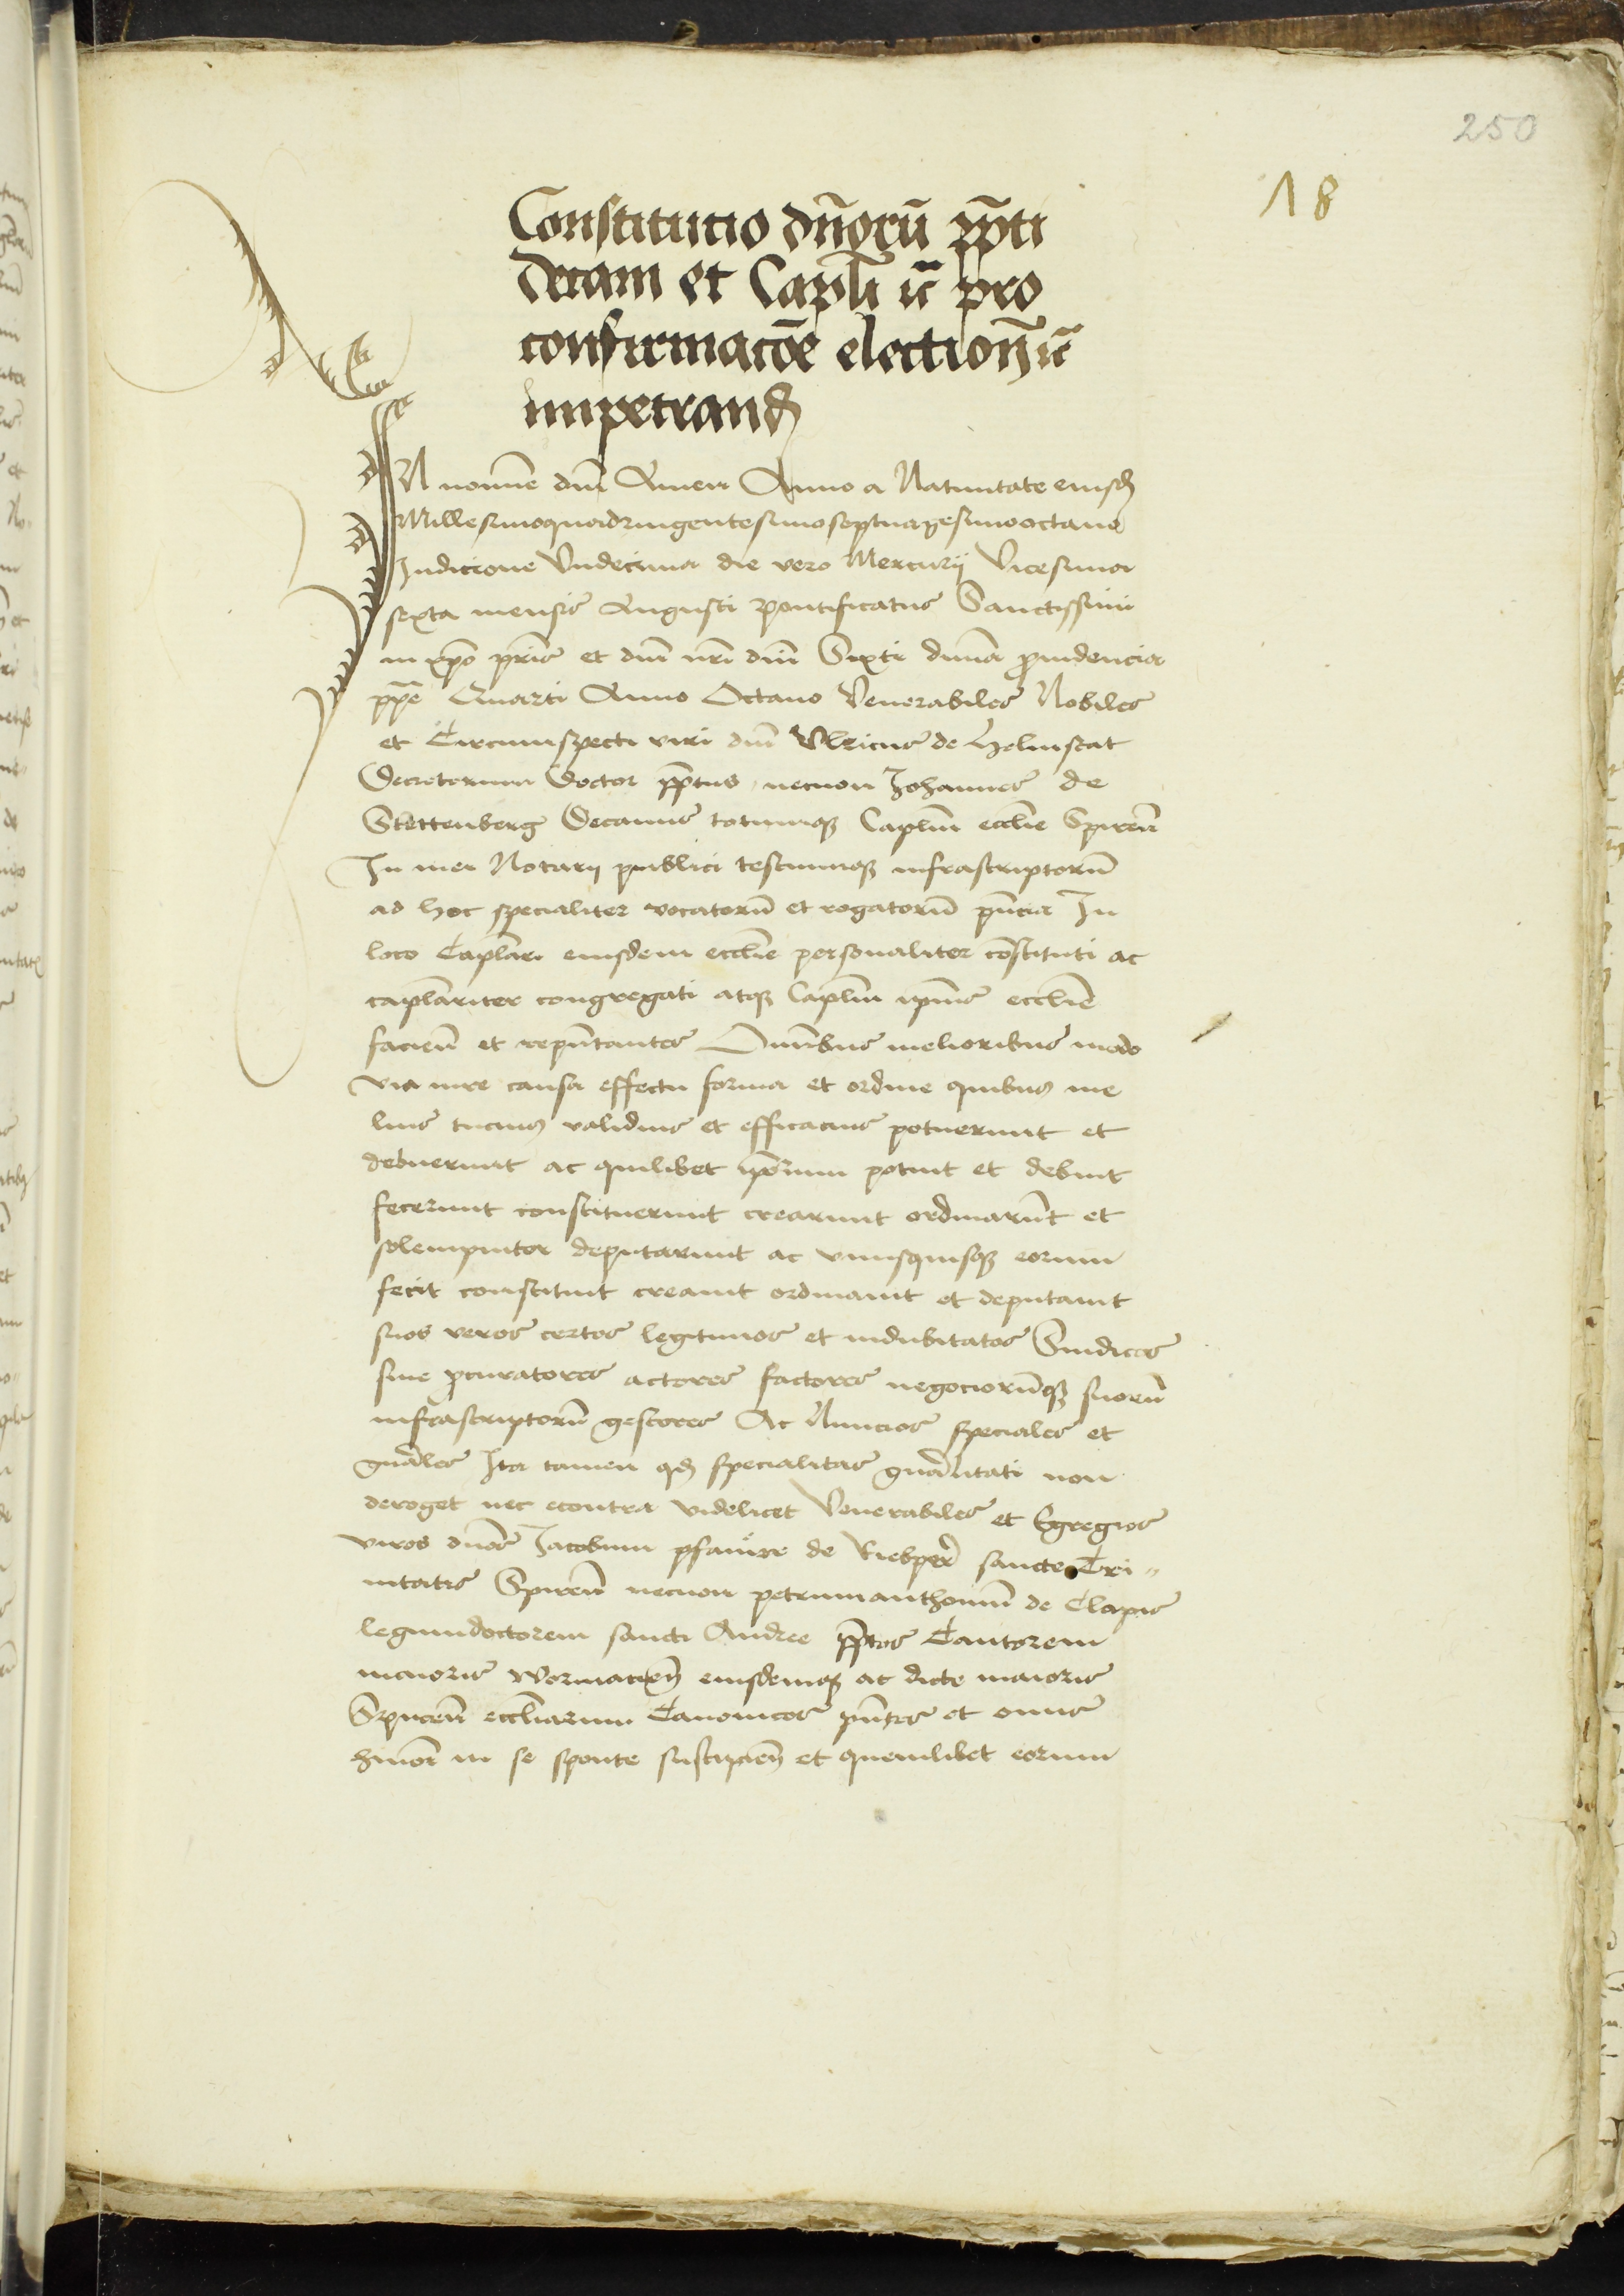 250
18
Constitucio dn̄orū pp̄ti
decani et Capl̄i ꝛc̄ pro
confirmacōe election̄ ꝛc̄
impetrand̄
IN nomine dn̄i Amen Anno a Natiuitate eiusd̄
Millesimoquadringentesimoseptuagesimooctauo
Indicione Vndecima die vero Mercurij Vicesima
sexta mensis Augusti pontificatus Sanctissimi
in xp̄o pr̄is et dn̄i nr̄i dn̄i Sixti diuina ꝓuidencia
pp̄e Quarti Anno Octauo Venerabiles Nobiles
et Circumspecti viri dn̄i Vlricus de Helmstat
Decretorum Doctor pp̄tus necnon Johannes de
Stettenberg Decanus totumqꝫ Capl̄m eccl̄ie Spireñ
In mei Notarij publici testiumqꝫ infrascriptorū
ad hoc specialiter vocatorū et rogatorū pn̄cia In
loco Capl̄ari eiusdem eccl̄ie personaliter cōstituti ac
capl̄ariter congregati atqꝫ Capl̄m ipsius eccl̄ie
facieñ et repn̄tantes Omībus melioribus modo
via iure causa effectu forma et ordine quibus me
lius tucius validius et efficacius potuerunt et
debuerunt ac quilibet ip̄orum potuit et debuit
fecerunt constituerunt crearunt ordinarūt et
solempniter deputarunt ac vnusquisqꝫ eorum
fecit constituit creauit ordinauit et deputauit
suos veros certos legitimos et indubitatos Sindicos
siue ꝓcuratores actores factores negociorūqꝫ suorū
infrascriptorū gestores Ac Nuncios speciales et
gn̄ales Ita tamen qd̄ specialitas gn̄alitati non
deroget nec econtra videlicet Venerabiles et Egregios
viros dn̄os Jacobum de sancte Tri„
nitatis Spireñ necnon petrumanthoniū de Clapis
legumdoctorem sancti Andree pp̄tos Cantorem
maioris Wormacieñ eiusdemqꝫ ac dicte maioris
Spireñ eccl̄iarum Canonicos pn̄tes et onus
hmōi in se sponte suscipieñ et quemlibet eorum